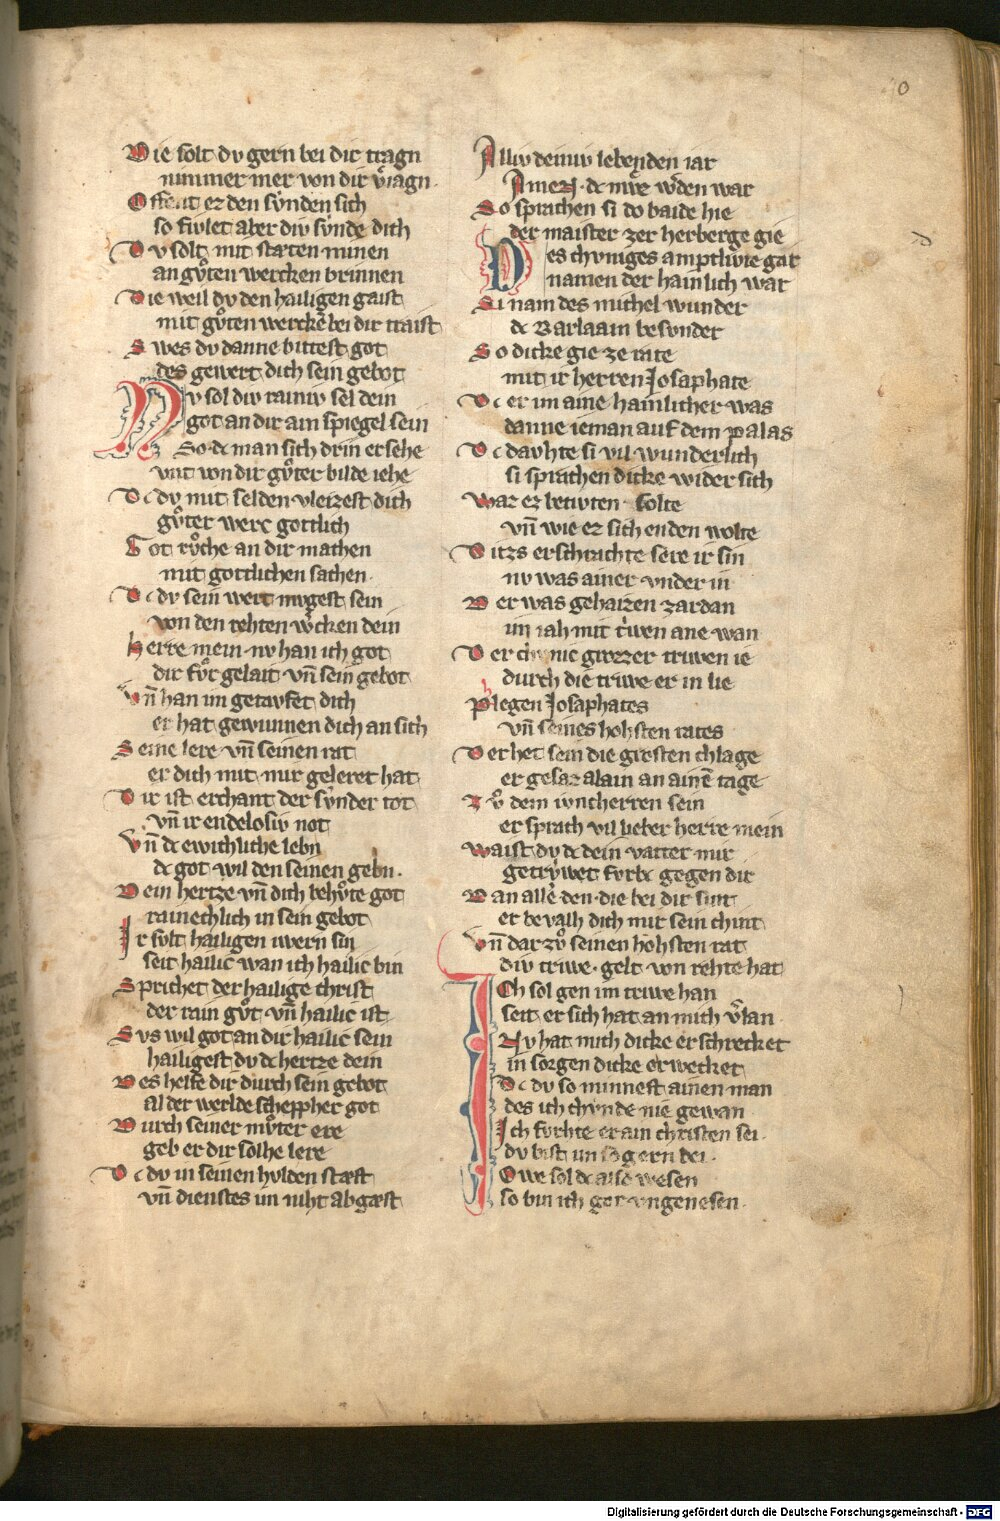 Die solt dv gern bei dir tragn
nimmer mer von dir v̾iagn.
Offent er den sv́nden sich
so fivlet aber div sv́nde dich
Dv solt mit stæten minen
an gvͦten wercken brinnen
Die weil dv den hailigen gaist
mit gvͦten werckē bei dir traist
Swes dv danne bittest got
des gewert dich sein gebot
Nv sol div rainiv sel dein
got an dir ain spiegel sein
So dc man sich drin ersehe
vnt von dir gvͦter bilde iehe
Dc dv mit selden vleizest dich
gvͦter werc gottlich
Got rvͦche an dir machen
mit gottlichen sachen.
Dc dv sein wert mvgest sein
von den rehten w̾cken dein
Herre mein nv han ich got
dir fvͦr gelait vn̄ sein gebot
Vn̄ han im getavfet dich
er hat gewunnen dich an sich
Seine lere vn̄ seinen rat
er dich mit mir geleret hat
Dir ist erchant der sv́nder tot
vn̄ ir endelosiv not
Vn̄ dc ewichliche lebn
dc got wil den seinen gebn.
Dein hertze vn̄ dich behvͤte got
rainechlich in sein gebot
Ir svlt hailigen iwern sin
seit hailic wan ich hailic bin
Sprichet der hailige christ
der rain gvͦt vn̄ hailic ist
Svs wil got an dir hailic sein
hailigest dv dc hertze dein
Des helfe dir durch sein gebot
al der werlde schepfher got
Durch seiner mvͦter ere
geb er dir solhe lere
Dc dv in seinen hvlden stæst
vn̄ dienstes im niht abgæst
Alliv deiniv lebenden iar
Amen. dc mv̾e w̾den war
So sprachen si do baide hie
der maister zer herberge gie
Des chvniges amptlivte gar
namen der haimlich war
Si nam des michel wunder
dc Barlaam besvnder
So dicke gie ze rate
mit ir herren Josaphate
Dc er im aine haimlicher was
danne ieman auf dem palas
Dc davhte si vil wunderlich
si sprachen dicke wider sich
waz ez betivten solte
vn̄ wie ez sich enden wolte
Ditzs erschrachte sere ir sin
nv was ainer vnder in
Der was gehaizen zardan
im iah mit triwen ane wan
Der chvnic grozzer triwen ie
durch die triwe er in lie
Phlegen Josaphates
vn̄ seines hohsten rates
Der het sein die grosten chlage
er gesaz alain an ainē tage
Zvͦ dem ivncherren sein
er sprach vil lieber herre mein
waist dv dc dein vatter mir
getrv́wet fvrbc gegen dir
Dan alle den die bei dir sint
er bevalh dich mir sein chint
Vn̄ dar zvͦ seinen hohsten rat
div triwe. gelt von rehte hat
Ich sol gen im triwe han
seit er sich hat an mich v̾lan
Nv hat mich dicke erschrecket
in sorgen dicke erwecket
Dc dv so minnest ainen man
des ich chvnde nie gewan
Ich fvrhte er ain christen sei.
dv bist im so gern bei.
Owe sol dc also wesen
so bin ich gar vngenesen.
Digitalisierung gefördert durch die Deutsche Forschungsgemeinschaft - DFG